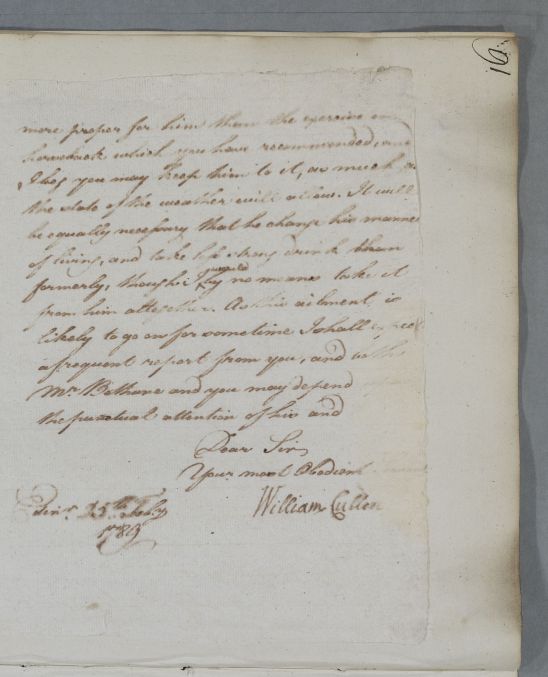 16
more proper for him than the exercise on
horseback which you have recommended, and
I beg you may keep him to it, as much as
the state of the weather will allow. It will
be equally necessary that he change his manner
of living, and take less strong drink than
formerly, though I would by no means take it
from him altogether. As this ailment is
likely to go on for sometime I shall expect
a frequent report from you, and both
Mr. Bethune and you may depend
the punctual attention of his and
Dear Sir
Your most Obedient
William Cullen
Edinr. 25th
178